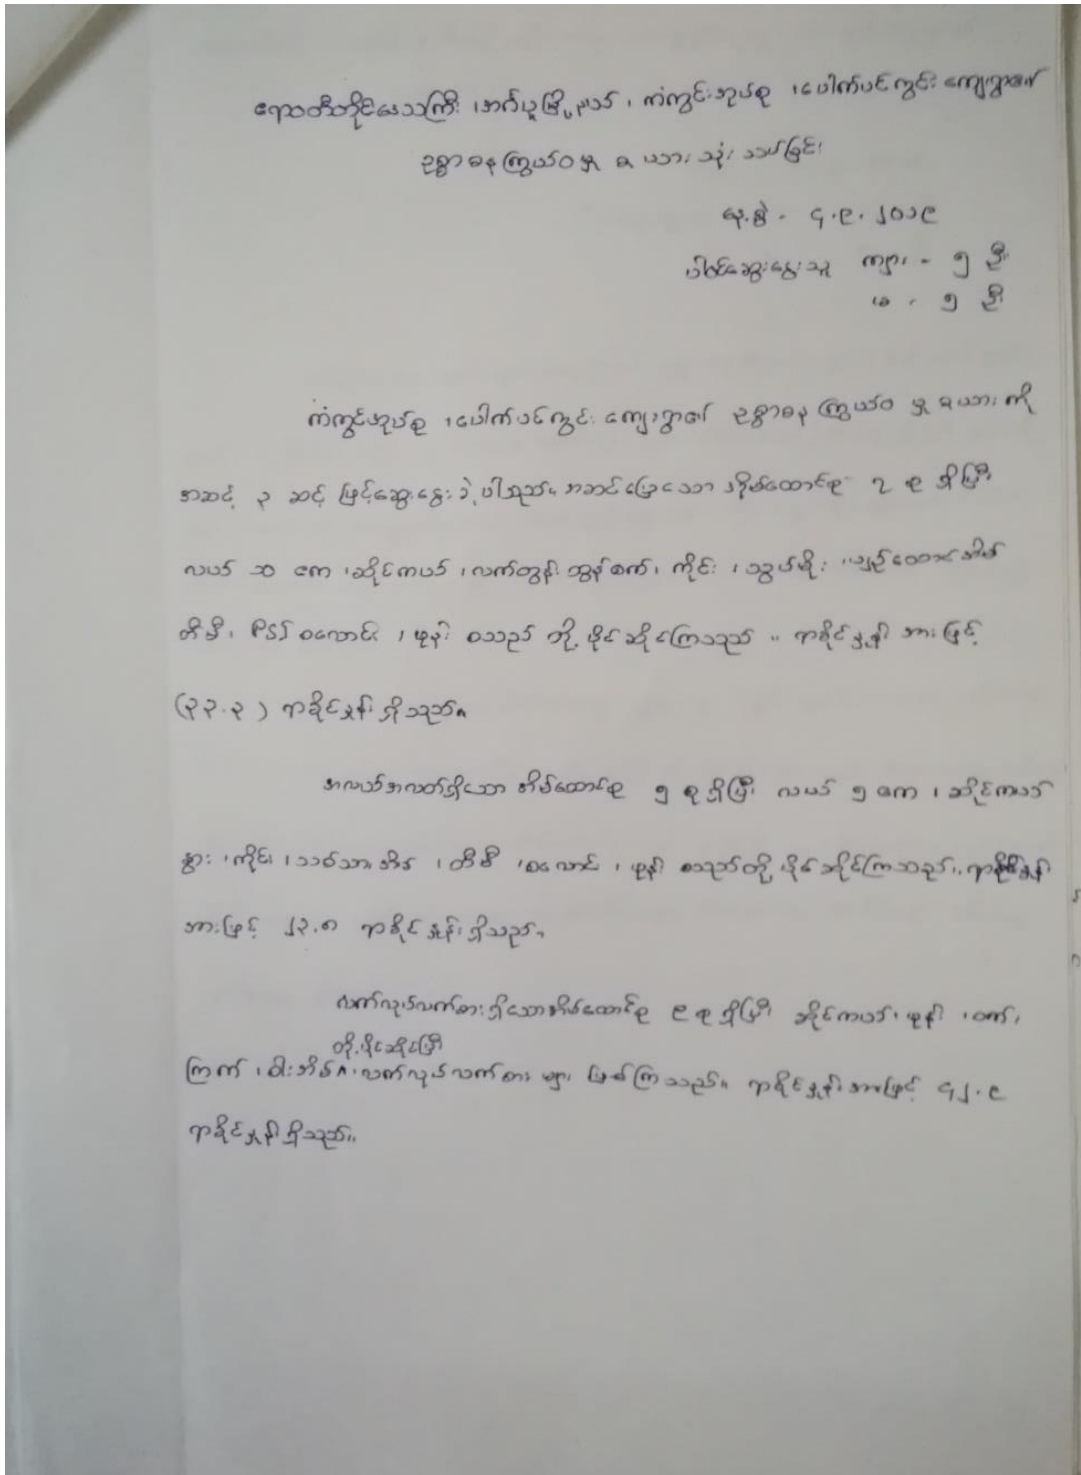 ဧရာဝတီတိုင်းဒေသကြီး ၊ အင်္ဂပူမြို့နယ် ၊ ကံကွင်းအုပ်စု ၊ ပေါက်ပင်ကွင်း ကျေးရွာ၏
ဥစ္စာဓနကြွယ်ဝမှု ဇယား သုံးသပ်ခြင်း
နေ့စွဲ - ၄.၉.၂၀၁၉
ပါဝင်ဆွေးနွေးသူ ကျား - ၅ ဦး
မ - ၅ ဦး
ကံကွင်းအုပ်စု ၊ ပေါက်ပင်ကွင်း ကျေးရွာ၏ ဥစ္စာဓန ကြွယ်ဝ မှု ဇယား ကို
အဆင့် ၃ ဆင့် ဖြင့်ဆွေးနွေး ခဲ့ပါသည်။ အဆင်ပြေသော အိမ်ထောင်စု ၇ စု ရှိပြီး
လယ် ၁၀ ဧက ၊ ဆိုင်ကယ် ၊ လက်တွန်း ထွန်စက် ၊ ကိုင်း ၊ သွပ်မိုး ၊ ပျဉ်ထောင်အိမ်
တီဗီ ၊ PSI စလောင်း ၊ ဖုန်း စသည် တို့ ပိုင်ဆိုင်ကြသည် ။ ရာခိုင်နှုန်း အားဖြင့်
(၃၃.၃) ရာခိုင်နှုန်း ရှိသည်။
အလယ်အလတ်ရှိသော အိမ်ထောင်စု ၅ စု ရှိပြီး လယ် ၅ ဧက ၊ ဆိုင်ကယ်
နွား ၊ ကိုင်း ၊ သစ်သား အိမ် ၊ တီဗီ ၊ စလောင်း ၊ ဖုန်း စသည်တို့ ပိုင်ဆိုင်ကြသည်။ ရာခိုင်နှုန်း
အားဖြင့် ၂၃.၈ ရာခိုင်နှုန်း ရှိသည်။
လက်လုပ်လက်စား ရှိသောအိမ်ထောင်စု ၉ စု ရှိပြီး ဆိုင်ကယ် ၊ ဖုန်း ၊ ဝက် ၊
တို့ ပိုင်ဆိုင်ပြီး
ကြက် ၊ ဝါးအိမ် ၊ လက်လုပ်လက်စား များ ဖြစ်ကြသည်။ ရာခိုင်နှုန်းအားဖြင့် ၄၂.၉
ရာခိုင်နှုန်းရှိသည်။